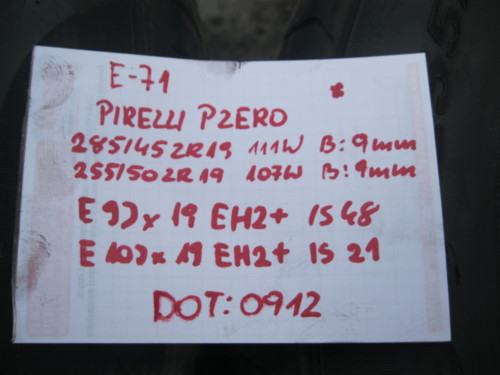 E-71
PIRELLI PZERO
285/45ZR19 111W B:9mm
255/50ZR19 107W B:9mm
E 9Jx19 EH2+ IS 48
E 10Jx19 EH2+ IS 21
DOT:0912